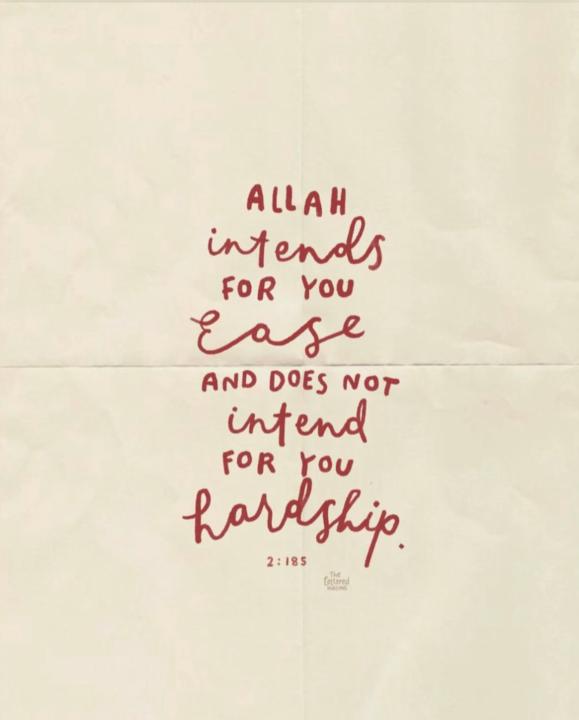 ALLAH
intends
FOR YOU
Ease
AND DOES NOT
intend
FOR YOU
hardship.
2:185
The